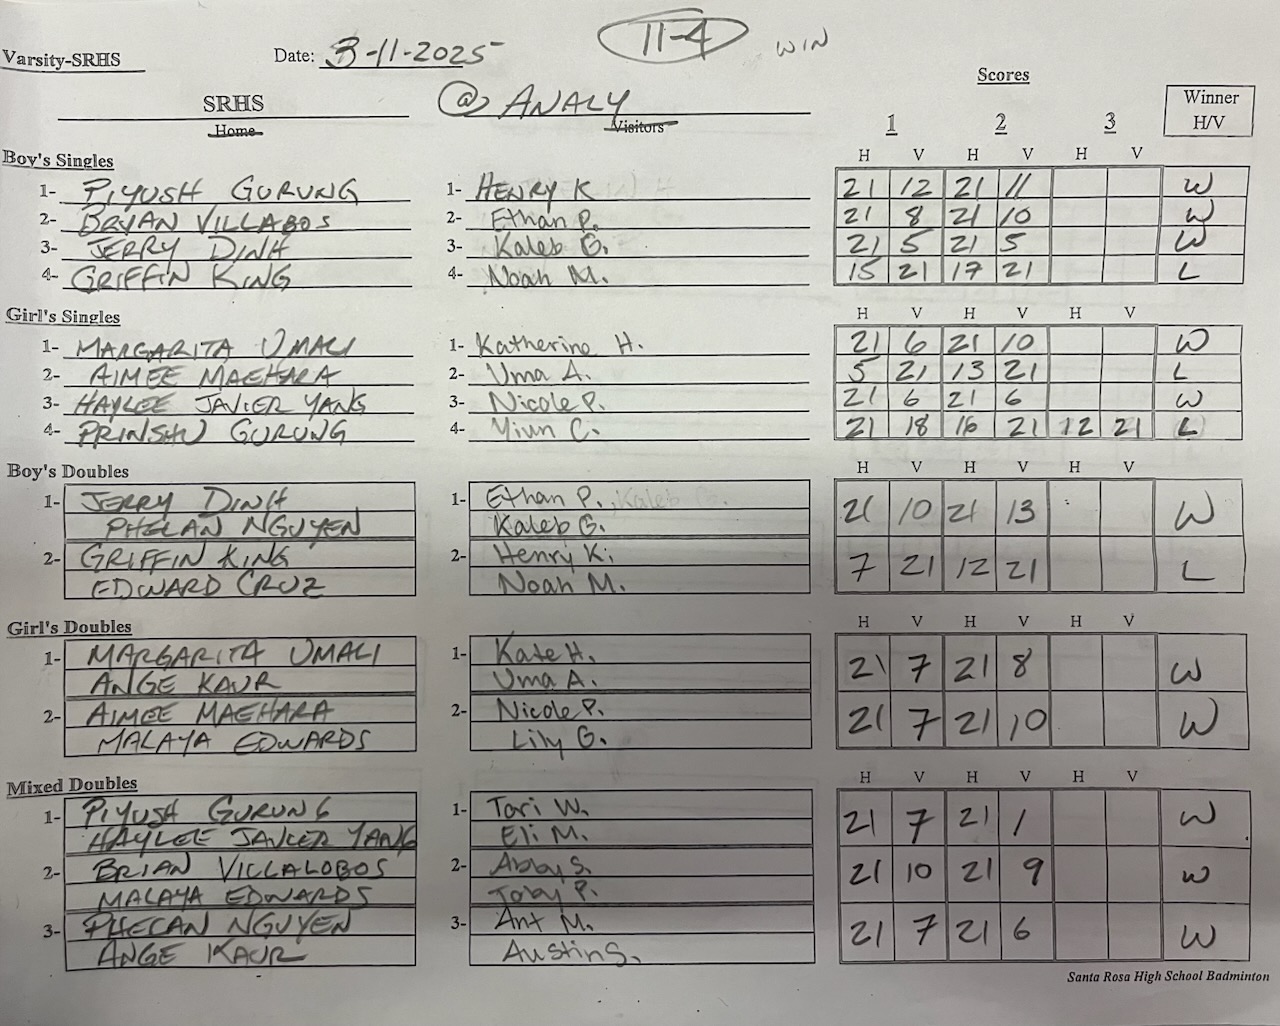 11-4 WIN
Varsity-SRHS Date: 3-11-2025
Scores
SRHS @ ANALY
Home Visitors
1 2 3 Winner H/V
Boy's Singles H V H V H V
1- PIYUSH GURUNG 1- HENRY K 21 12 21 11 W
2- BRYAN VILLABOS 2- Ethan P. 21 8 21 10 W
3- JERRY DINH 3- Kaleb G. 21 5 21 5 W
4- GRIFFIN KING 4- Noah M. 15 21 17 21 L
Girl's Singles H V H V H V
1- MARGARITA UMALI 1- Katherine H. 21 6 21 10 W
2- AIMEE MAEHARA 2- Uma A. 5 21 13 21 L
3- HAYLEE JAVIER YANG 3- Nicole P. 21 6 21 6 W
4- PRINSHU GURUNG 4- C. 21 18 16 21 12 21 L
Boy's Doubles H V H V H V
1- JERRY DINH 1- Ethan P., Kaleb G. 21 10 21 13 W
PHELAN NGUYEN Kaleb G.
2- GRIFFIN KING 2- Henry K. 7 21 12 21 L
EDWARD CRUZ Noah M.
Girl's Doubles H V H V H V
1- MARGARITA UMALI 1- Kate H. 21 7 21 8 W
ANGE KAUR Uma A.
2- AIMEE MAEHARA 2- Nicole P. 21 7 21 10 W
MALAYA EDWARDS Lily G.
Mixed Doubles H V H V H V
1- PIYUSH GURUNG 1- Tori W. 21 7 21 1 W
HAYLEE JAVIER YANG Eli M.
2- BRIAN VILLALOBOS 2- Abby S. 21 10 21 9 W
MALAYA EDWARDS Toby P.
3- PHELAN NGUYEN 3- Ant M. 21 7 21 6 W
ANGE KAUR Austin S.
Santa Rosa High School Badminton